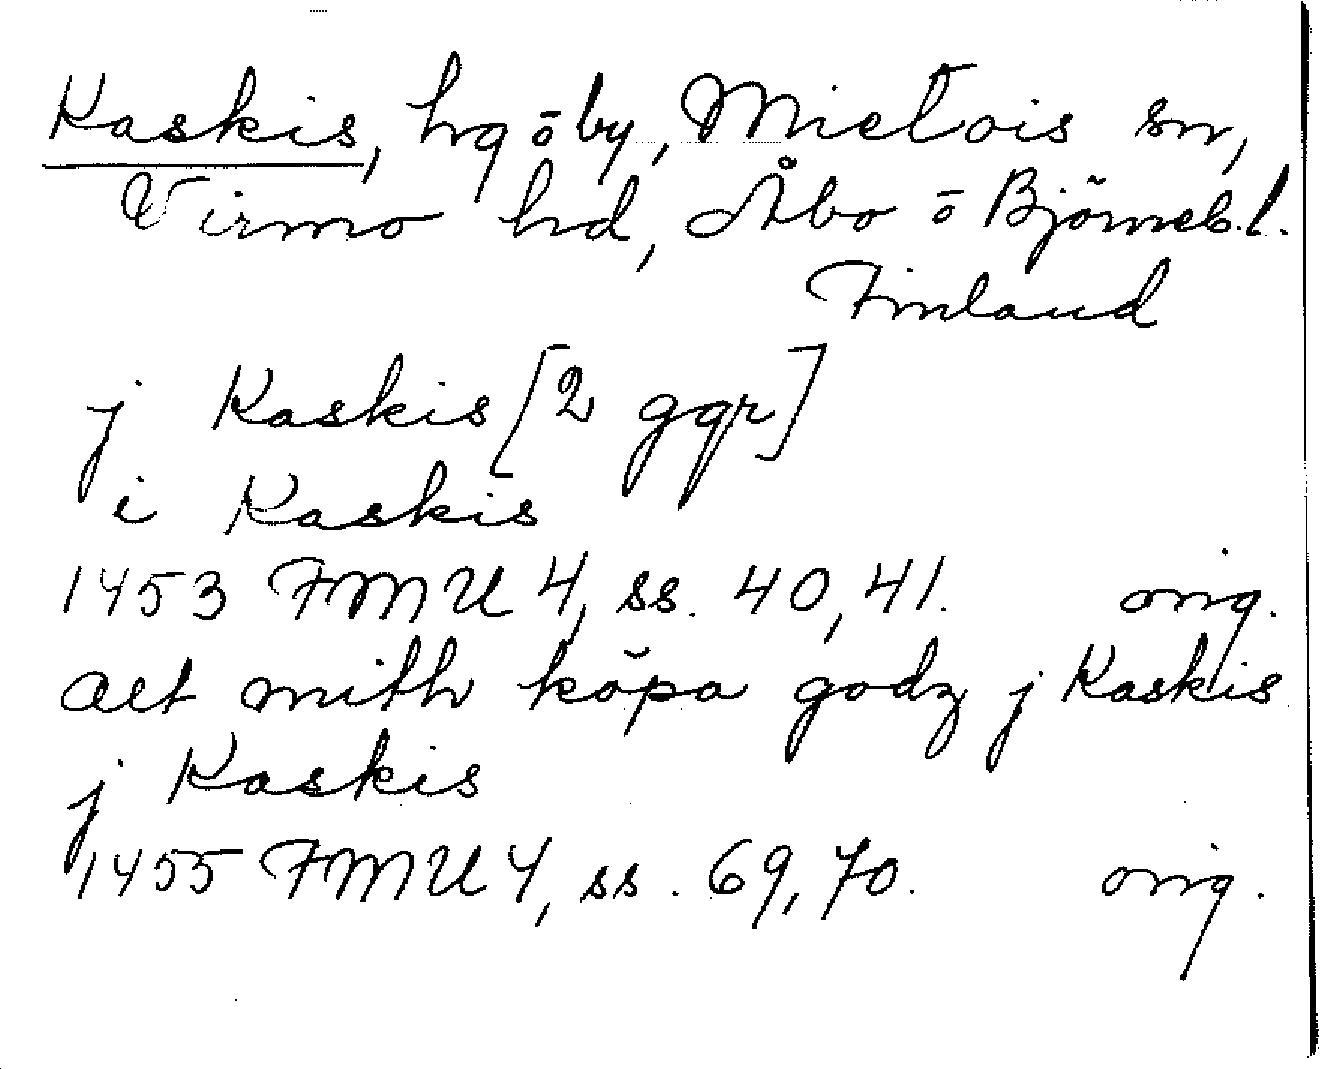 Kaskis, hg ō by, Mietois sn,
Virmo hd, Åbo ō Björneb.l.
Finland
j Kaskis [2 ggr]
i Kaskis
1453 FMU 4, ss. 40, 41. orig.
alt mith köpa godz j Kaskis
j Kaskis
1455 FMU 4, ss. 69, 70. orig.